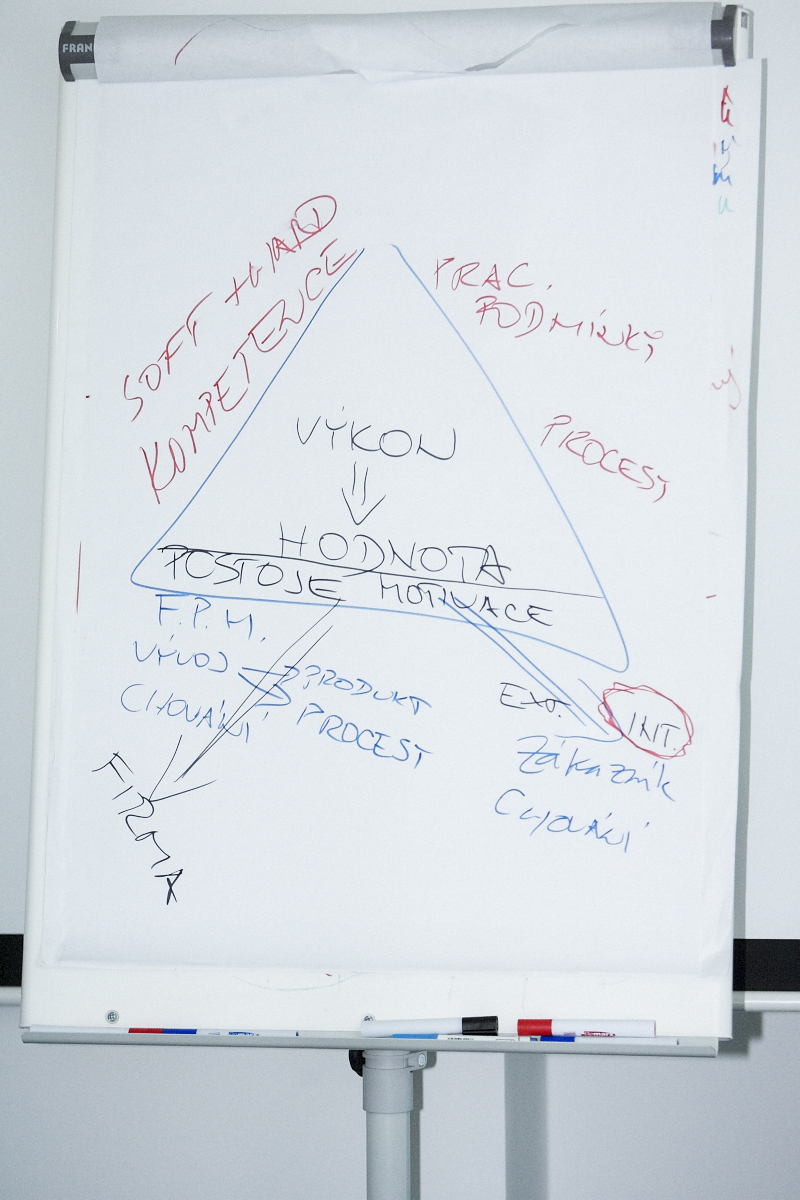 FRAN
SOFT + HARD
KOMPETENCE
PRAC.
PODMÍNKY
PROCESY
VÝKON
HODNOTA
POSTOJE MOTIVACE
F.P.M.
VÝVOJ
PRODUKT
CHOVÁNÍ
PROCESY
FIRMA
EXT.
INT.
Zákazník
CHOVÁNÍ